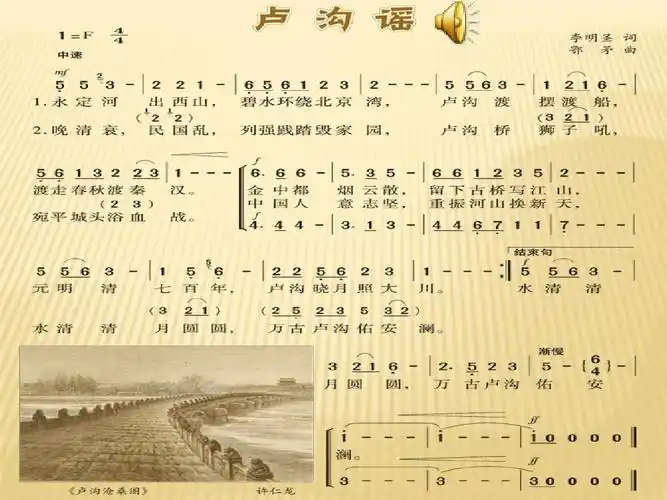 卢沟谣
1=F 4/4
李明圣 词
中速
鄂矛 曲
mf
5 5 2 3 - | 2 2 1 - | 6 5 6 1 2 3 | 2 - - - | 5 5 6 3 - | 1 2 1 6 - |
1.永定河 出西山, 碧水环绕北京湾, 卢沟渡 摆渡船,
(1 2 1 2) (3 2 1)
2.晚清衰, 民国乱, 列强践踏毁家园, 卢沟桥 狮子吼,
5 6 1 3 2 2 3 | 1 - - - | 6. 6 6 - | 5. 3 5 - | 6 6 1 2 3 5 | 2 - - - |
渡走春秋渡秦汉。 金中都 烟云散, 留下古桥写江山,
(2 3) 中国人 意志坚, 重振河山换新天,
宛平城头浴血战。
f
4. 4 4 - | 3. 1 3 - | 4 4 6 7 1 1 | 7 - - - |
结束句
5 5 6 3 - | 1 5 6 - | 2 2 5 6 6 | 1 - - - :| 5 5 6 3 - |
元明清 七百年, 卢沟晓月照大川。 水清清
(3 2 1) (2 5 2 3 5 3 2)
水清清 月圆圆, 万古卢沟佑安澜。
渐慢
3 2 1 6 - | 2. 5 2 3 | 5 - {6/4} - - |
月圆圆, 万古卢沟佑安
ff
i - - - | i - - - | i 0 0 0 0 ‖
澜。
ff
3 - - - | 3 - - - | 3 0 0 0 0 ‖
《卢沟沧桑图》 许仁龙